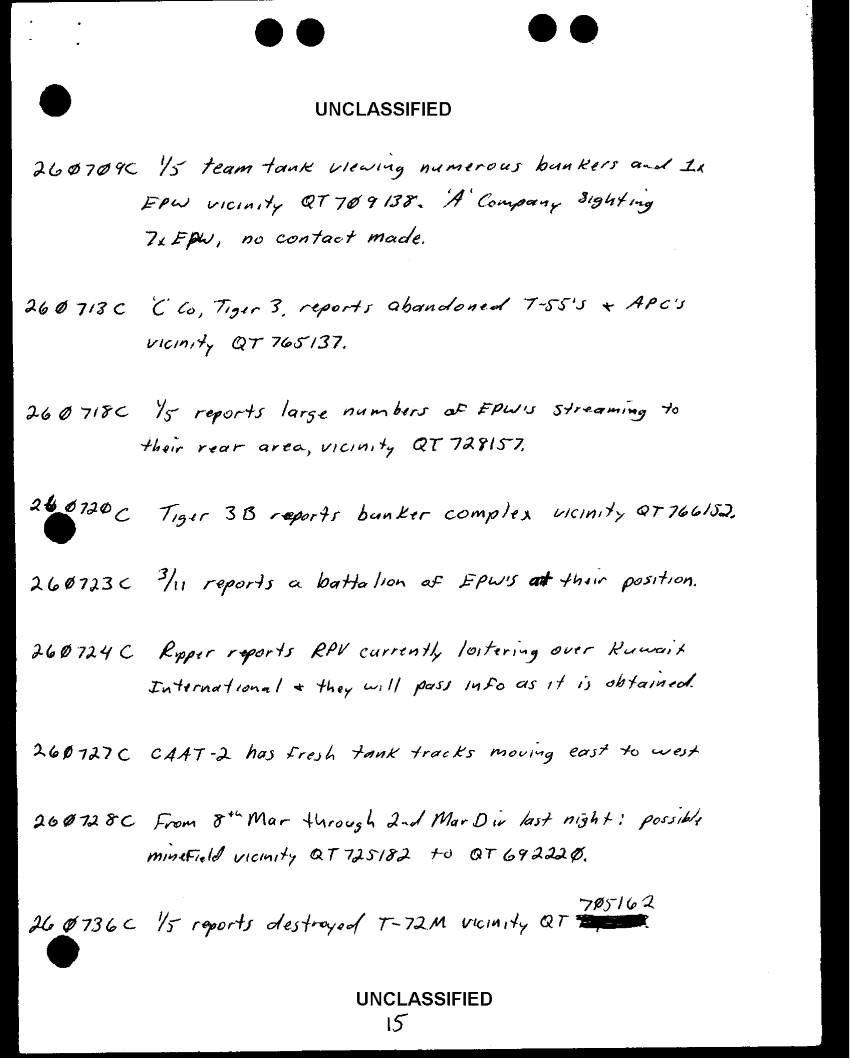 UNCLASSIFIED
26Ø7Ø9C 1/5 team tank viewing numerous bunkers and 1x
EPW vicinity QT 7Ø9138. 'A' Company sighting
7x EPW, no contact made.
26Ø713C 'C' Co, Tiger 3, reports abandoned T-55's + APC's
vicinity QT 765137.
26Ø718C 1/5 reports large numbers of EPW's streaming to
their rear area, vicinity QT 728157.
26Ø72ØC Tiger 3B reports bunker complex vicinity QT 766152.
26Ø723C 3/11 reports a battalion of EPW's at their position.
26Ø724C Ripper reports RPV currently loitering over Kuwait
International + they will pass info as it is obtained.
26Ø727C CAAT-2 has fresh tank tracks moving east to west
26Ø728C From 8th Mar through 2nd Mar Div last night: possible
minefield vicinity QT 725182 to QT 69222Ø.
7Ø5162
26Ø736C 1/5 reports destroyed T-72M vicinity QT
UNCLASSIFIED
15